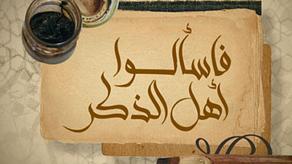 فاسألوا
أهل الذكر